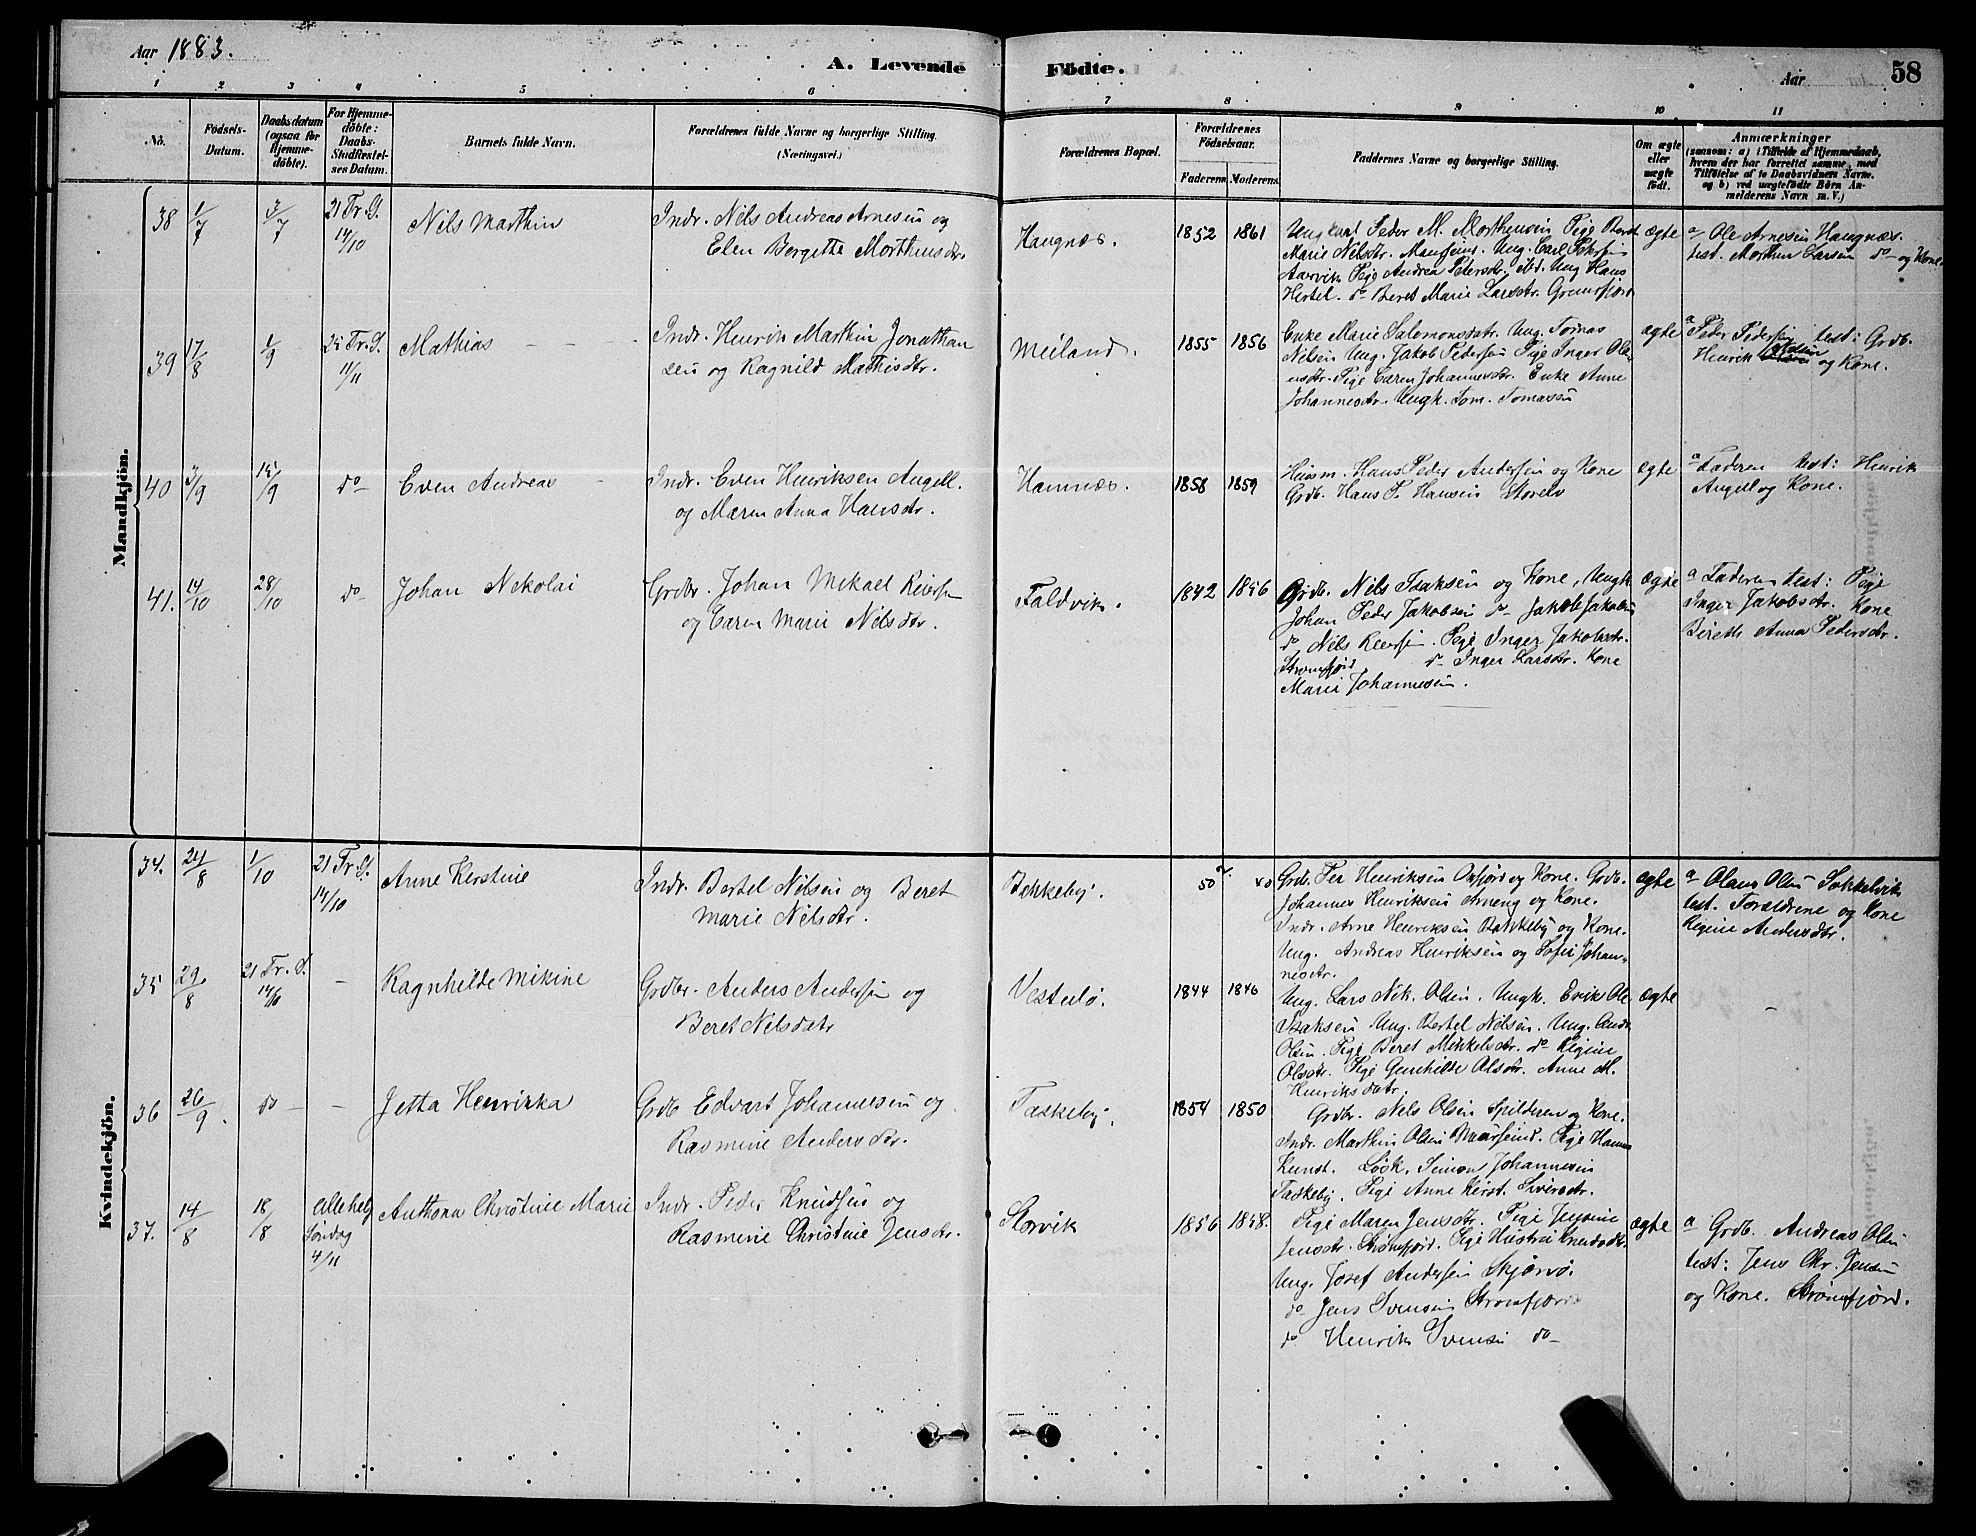 Aar 1883.
A. Levende Födte.
Aar 58
1 2 3 4 5 6 7 8 9 10 11
No.
Födsels-
Datum.
Daabsdatum
(ogsaa for
Hjemme-
döbte).
For Hjemme-
döbte:
Daabs-
Stadfæstel-
ses Datum.
Barnets fulde Navn.
Forældrenes fulde Navne og borgerlige Stilling.
(Næringsvei.)
Forældrenes Bopæl.
Forældrenes
Födselsaar.
Faderens. Moderens.
Faddernes Navne og borgerlige Stilling.
Om ægte
eller
uægte
födt.
Anmærkninger
(saasom: a) i Tilfælde af Hjemmedaab,
hvem der har forrettet samme, med
Tilföielse af to Daabsvidners Navne,
og b) ved uægtefödte Börn An-
melderens Navn m. V.)
Mandkjön.
38 1/7 3/7 21 Tr. S.
14/10
Nils Marthin
Indr. Nils Andreas Arnesen og
Elen Bergitta Morthensdr.
Haugnæs. 1852 1861
Ungkarl Peder M. Morthensen Pige Beret
Marie Nilsdtr. Ung. Carl Pedersen
Aarvik Pige Andrea Petersdtr. ibd. Ung Hans
Hertel. do Beret Marie Larsdtr. Grunfjord
ægte
a/ Ole Arnesen Haugnæs.
test. Morthen Larsen do og Kone.
39 17/8 1/9 25 Tr. S.
11/11
Mathias
Indr. Henrik Marthin Jonathan
sen og Ragnild Mathisdtr.
Meiland. 1855 1856
Enke Marie Salemonsdtr. Ung. Tomas
Nilsen Ung. Jakob Pedersen Pige Inger Ole
ensdtr. Pige Caren Johannesdtr. Enke Anne
Johannesdtr. Ungk. Tom. Tomassen
ægte
a Peder Pedersen test: Grdb.
Henrik og Kone.
40 3/9 15/9 do
Even Andreas
Indr. Even Henriksen Angell.
og Maren Anna Hansdtr.
Hamnæs. 1858 1859
Husm. Hans Peder Andersen og Kone
Grdb. Hans P. Hansen Storelv
ægte
a Faderen test: Henrik
Angell og Kone.
41. 14/10 28/10 do
Johan Nikolai
Grdbr. Johan Mikael Reiersen
og Caren Marie Nilsdtr.
Faldvik. 1842 1856
Grdb. Nils Isaksen og Kone, Ungk
Johan Peder Jakobsen do Jakob Jakobsen
do Nils Reiersen. Pige Inger Jakobsdtr.
Strømfjord do Inger Larsdtr. Kone
Marie Johannesen.
ægte
a Faderen test: Pige
Inger Jakobsdtr. Kone
Bereth Anna Pedersdtr.
Kvindekjön.
34. 24/8 1/10 21 Tr. S.
14/10
Anne Kerstine
Indr. Bertel Nilsen og Beret
Marie Nilsdtr.
Bekkeby. 50 40
Grdb. Per Henriksen Oxfjord og Kone. Grdb.
Johannes Henriksen Arneng og Kone.
Indr. Arne Henriksen Bakkeby og Kone.
Ung. Andreas Henriksen og Sofie Johan-
nesdtr.
ægte
a Olaus Olsen Sokkelvik
test. Forældrene og Kone
Regine Andersdtr.
35 29/8 21 Tr. S.
14/10
–
Ragnhilde Mikine
Grdbr. Anders Andersen og
Beret Nilsdatr
Vesterlø. 1844 1846
Ung. Lars Nik. Olsen. Ungk. Erik Ole
Isaksen Ung. Bertel Nilsen. Ung. And.
Olsen. Pige Beret Mikkelsdtr. do Regine
Olsdtr. Pige Gunhilde Olsdtr. Anne M.
Henriksdatr.
ægte
–
36 26/9. do –
Jetta Henrikka
Grdb Edvart Johannesen og
Rasmine Andersdtr.
Taskeby. 1854 1850
Grdbr. Nils Olsen Spilderen og Kone.
Indr. Marthin Olsen Pige Hanna
Kunst. Løsk. Simon Johannesen
Taskeby. Pige Anne Kerst. Siversdtr.
37. 14/8 18/8 Allehelg
Søndag
4/11
Anthona Christine Marie
Indr. Peder Knudsen og
Rasmine Christine Jensdtr.
Storvik 1856 1858.
Pige Maren Jensdtr. Pige
Jensdtr. Strømfjord. Pige
Ung. Josef Andersen Skjærvø.
do Jens Svensen Strømfjord
do Henrik Svensen do
ægte
a Grdb. Andreas Olsen
test: Jens Chr. Jensen
og Kone. Strømfjord.